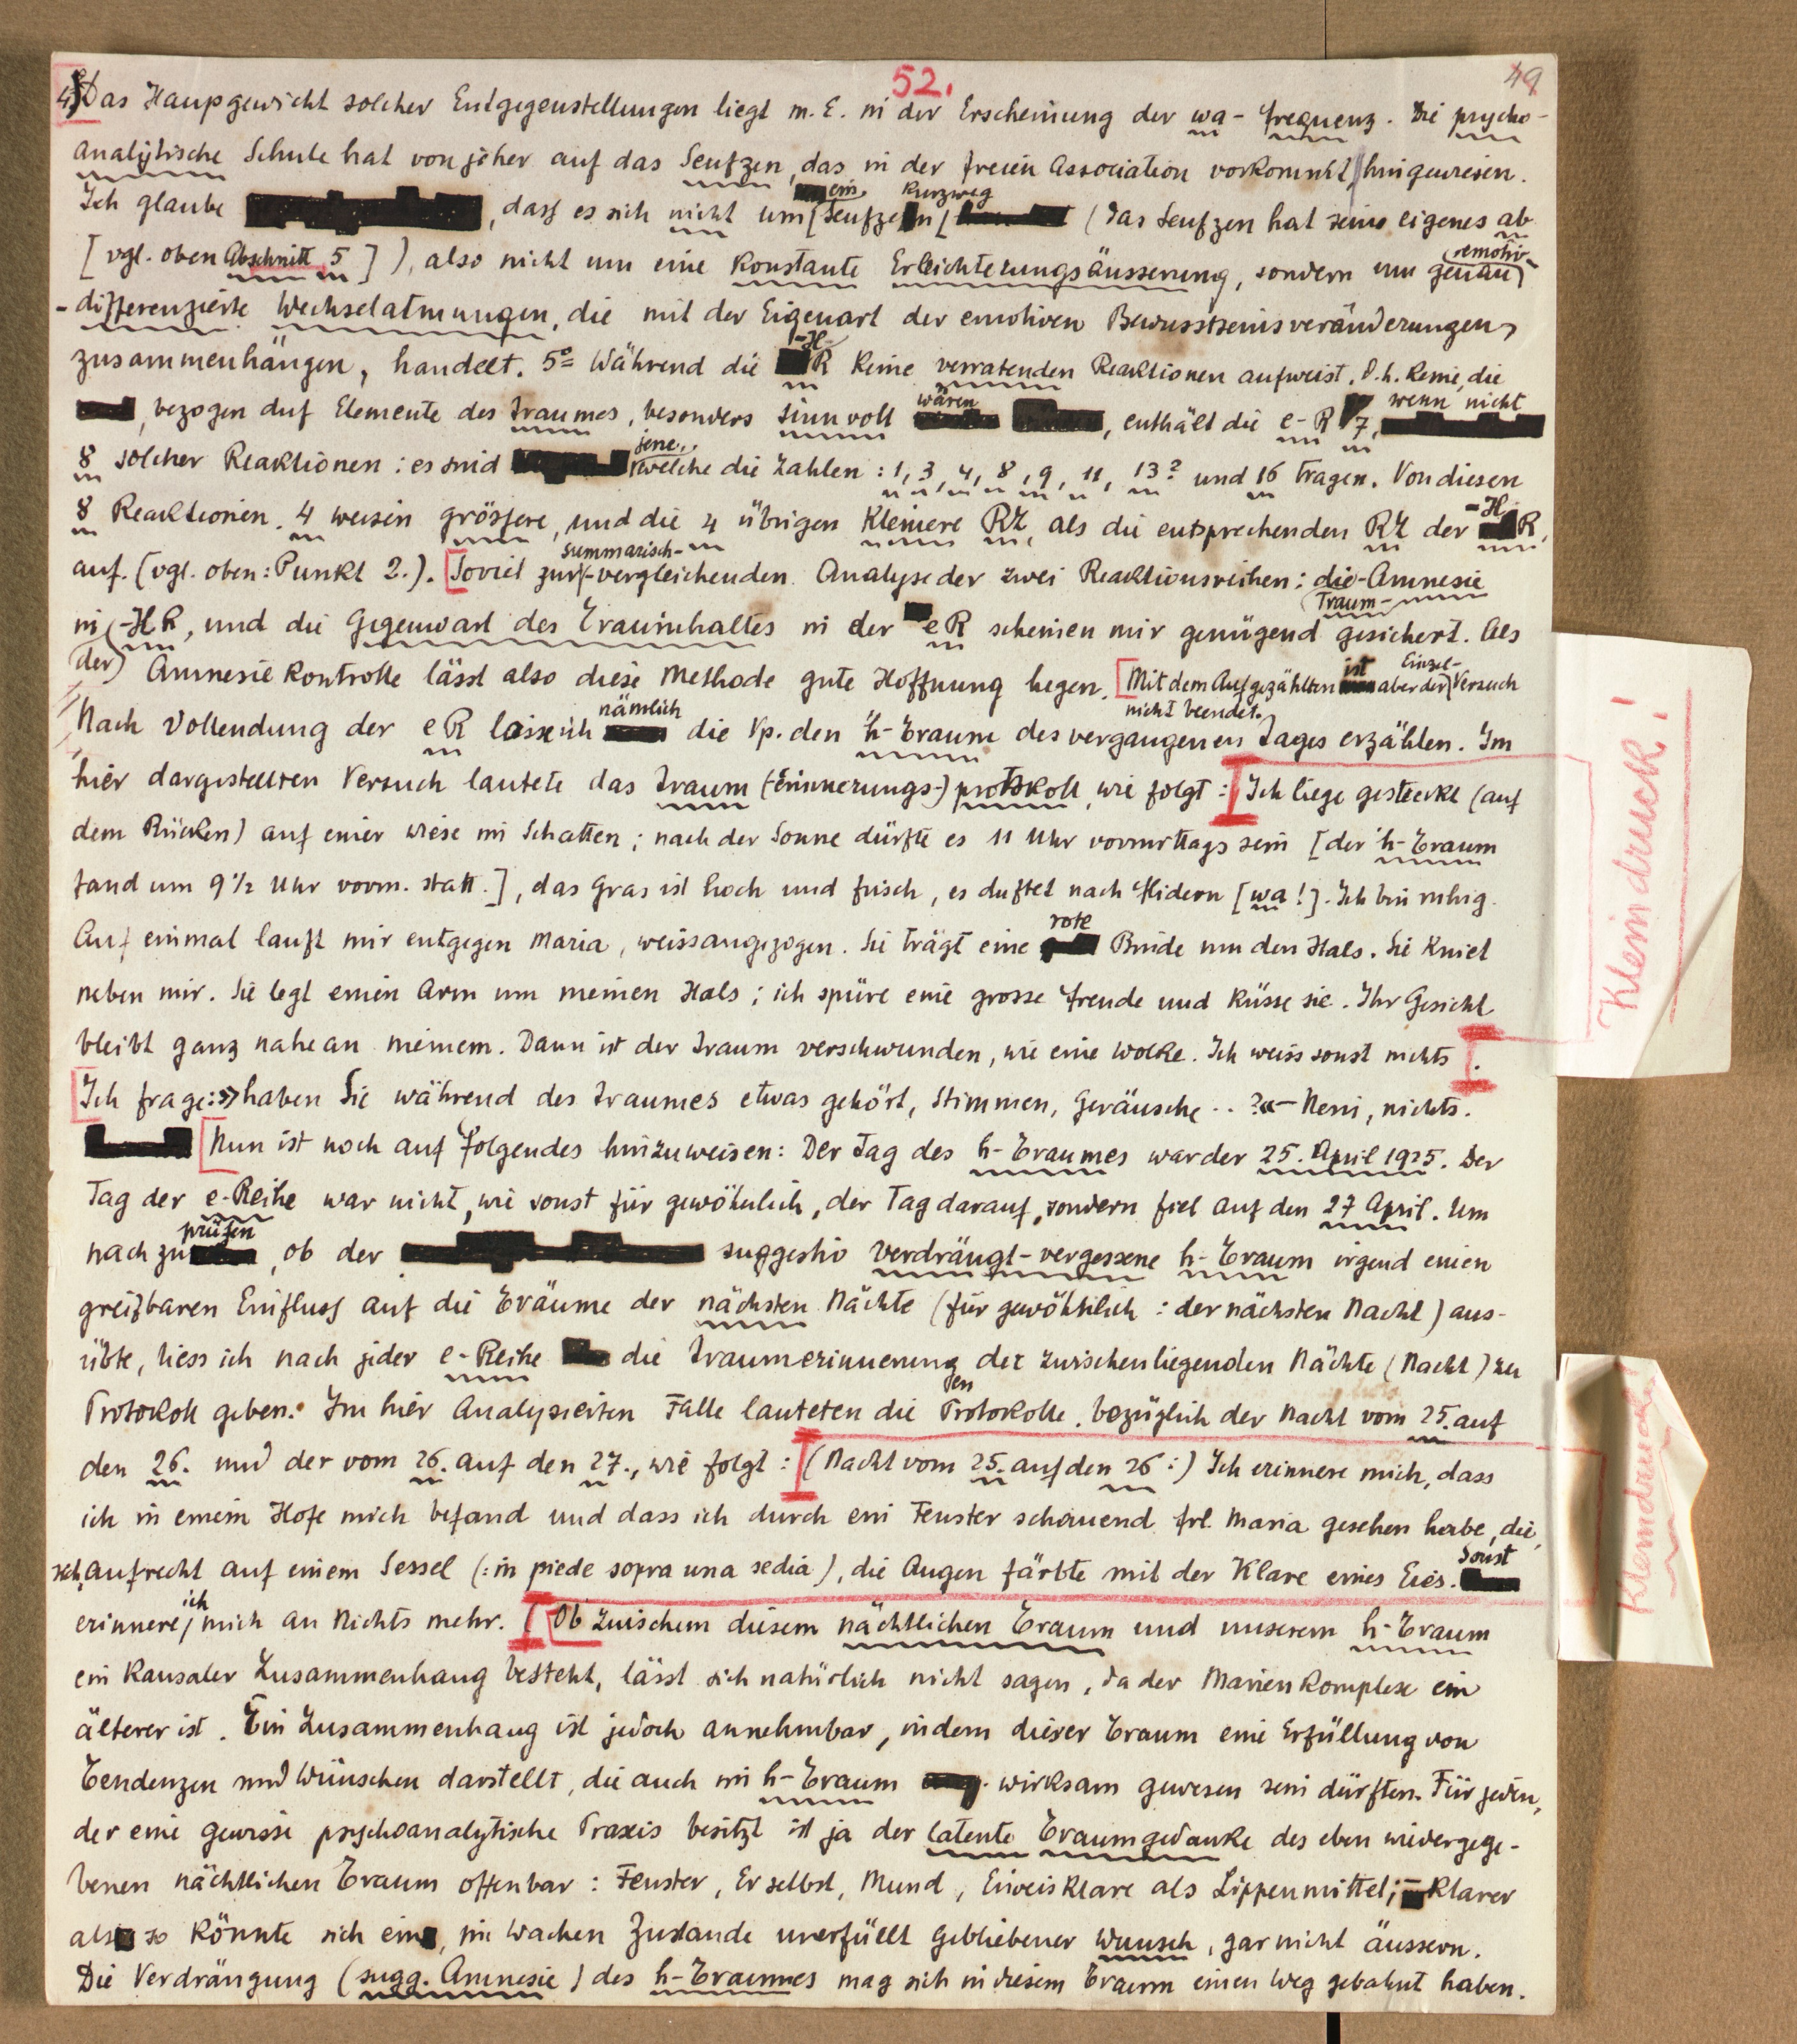 52.
49
4) Das Haupgewicht solcher Entgegenstellungen liegt m. E. in der Erscheinung der wa - frequenz. Die psycho-
analytische Schule hat von jeher auf das Seufzen, das in der freien Association vorkommt, hingewiesen.
ein kurzweg
Ich glaube, dass es sich nicht um [Seufzen [ (das Seufzen hat seine eigenes ab
[vgl. oben Abschnitt 5]), also nicht um eine konstante Erleichterungsäusserung, sondern um genau
(emotiv-
- differenzierte Wechselatmungen, die mit der Eigenart der emotiven Bewusstseinsveränderungen,
zusammenhängen, handelt. 5º= Während die -H-R keine verratenden Reaktionen aufweist, d.h. keine, die
wären wenn nicht
, bezogen auf Elemente des Traumes, besonders sinnvoll , enthält die e-R 7,
jene,
8 solcher Reaktionen: es sind welche die Zahlen: 1, 3, 4, 8, 9, 11, 13? und 16 tragen. Von diesen
8 Reaktionen, 4 weisen grössere, und die 4 übrigen kleinere RZ, als die entsprechenden RZ der -H-R,
summarisch-
auf. (vgl. oben: Punkt 2.). [Soviel zur -vergleichenden Analyse der zwei Reaktionsreihen: die Amnesie
(Traum-
in -HR, und die Gegenwart des Trauminhaltes in der eR scheinen mir genügend gesichert. Als
der)
Amnesiekontrolle lässt also diese Methode gute Hoffnung hegen. [Mit dem Aufgezählten ist aber der Einzel-Versuch
nicht beendet.
nämlich
Nach Vollendung der eR lasse ich die Vp. den h-Traum des vergangenen Tages erzählen. Im
hier dargestellten Versuch lautete das Traum (-Erinnerungs-) protokoll, wie folgt: [Ich liege gestreckt (auf
dem Rücken) auf einer Wiese im Schatten; nach der Sonne dürfte es 11 Uhr vormittags sein [der h-Traum
fand um 9½ Uhr vorm. statt.], das Gras ist hoch und frisch, es duftet nach Flidern [wa!]. Ich bin ruhig.
rote
Auf einmal lauft mir entgegen Maria, weissangezogen. Sie trägt eine Binde um den Hals. Sie kniet
neben mir. Sie legt einen Arm um meinen Hals; ich spüre eine grosse Freude und küsse sie. Ihr Gesicht
bleibt ganz nahe an meinem. Dann ist der Traum verschwunden, wie eine Wolke. Ich weiss sonst nichts].
[Ich frage: »haben Sie während des Traumes etwas gehört, Stimmen, Geräusche .. ?« - Nein, nichts.
[Nun ist noch auf folgendes hinzuweisen: Der Tag des h-Traumes war der 25. April 1925. Der
Tag der e-Reihe war nicht, wie sonst für gewöhnlich, der Tag darauf, sondern fiel auf den 27 April. Um
prüfen
nachzu , ob der suggestiv verdrängt-vergessene h-Traum irgend einen
greifbaren Einfluss auf die Träume der nächsten Nächte (für gewöhnlich: der nächsten Nacht) aus-
übte, liess ich nach jeder e-Reihe die Traumerinnerungen der zwischenliegenden Nächte (Nacht) zu
Protokoll geben. Im hier analysierten Falle lauteten die Protokolle, bezüglich der Nacht vom 25. auf
den 26. und der vom 26. auf den 27., wie folgt: [(Nacht vom 25. auf den 26:) Ich erinnere mich, dass
ich in einem Hofe mich befand und dass ich durch ein Fenster schauend frl. Maria gesehen habe, die,
Sonst
sich, aufrecht auf einem Sessel (: in piede sopra una sedia), die Augen färbte mit der Klare eines Eies.
erinnere ich mich an Nichts mehr. [Ob zwischem diesem nächtlichen Traum und unserem h-Traum
ein kausaler Zusammenhang besteht, lässt sich natürlich nicht sagen, da der Marienkomplex ein
älterer ist. Ein Zusammenhang ist jedoch annehmbar, indem dieser Traum eine Erfüllung von
Tendenzen und Wünschen darstellt, die auch im h-Traum wirksam gewesen sein dürften. Für jeden,
der eine gewisse psychoanalytische Praxis besitzt ist ja der latente Traumgedanke des eben widergege-
benen nächtlichen Traum offenbar: Fenster, Er selbst, Mund, Eiweisklare als Lippenmittel; - klarer
als so könnte sich ein, im wachen Zustande unerfüllt gebliebener Wunsch, gar nicht äussern.
Die Verdrängung (sugg. Amnesie) des h-Traumes mag sich in diesem Traum einen Weg gebahnt haben.
Kleindruck!
Kleindruck!